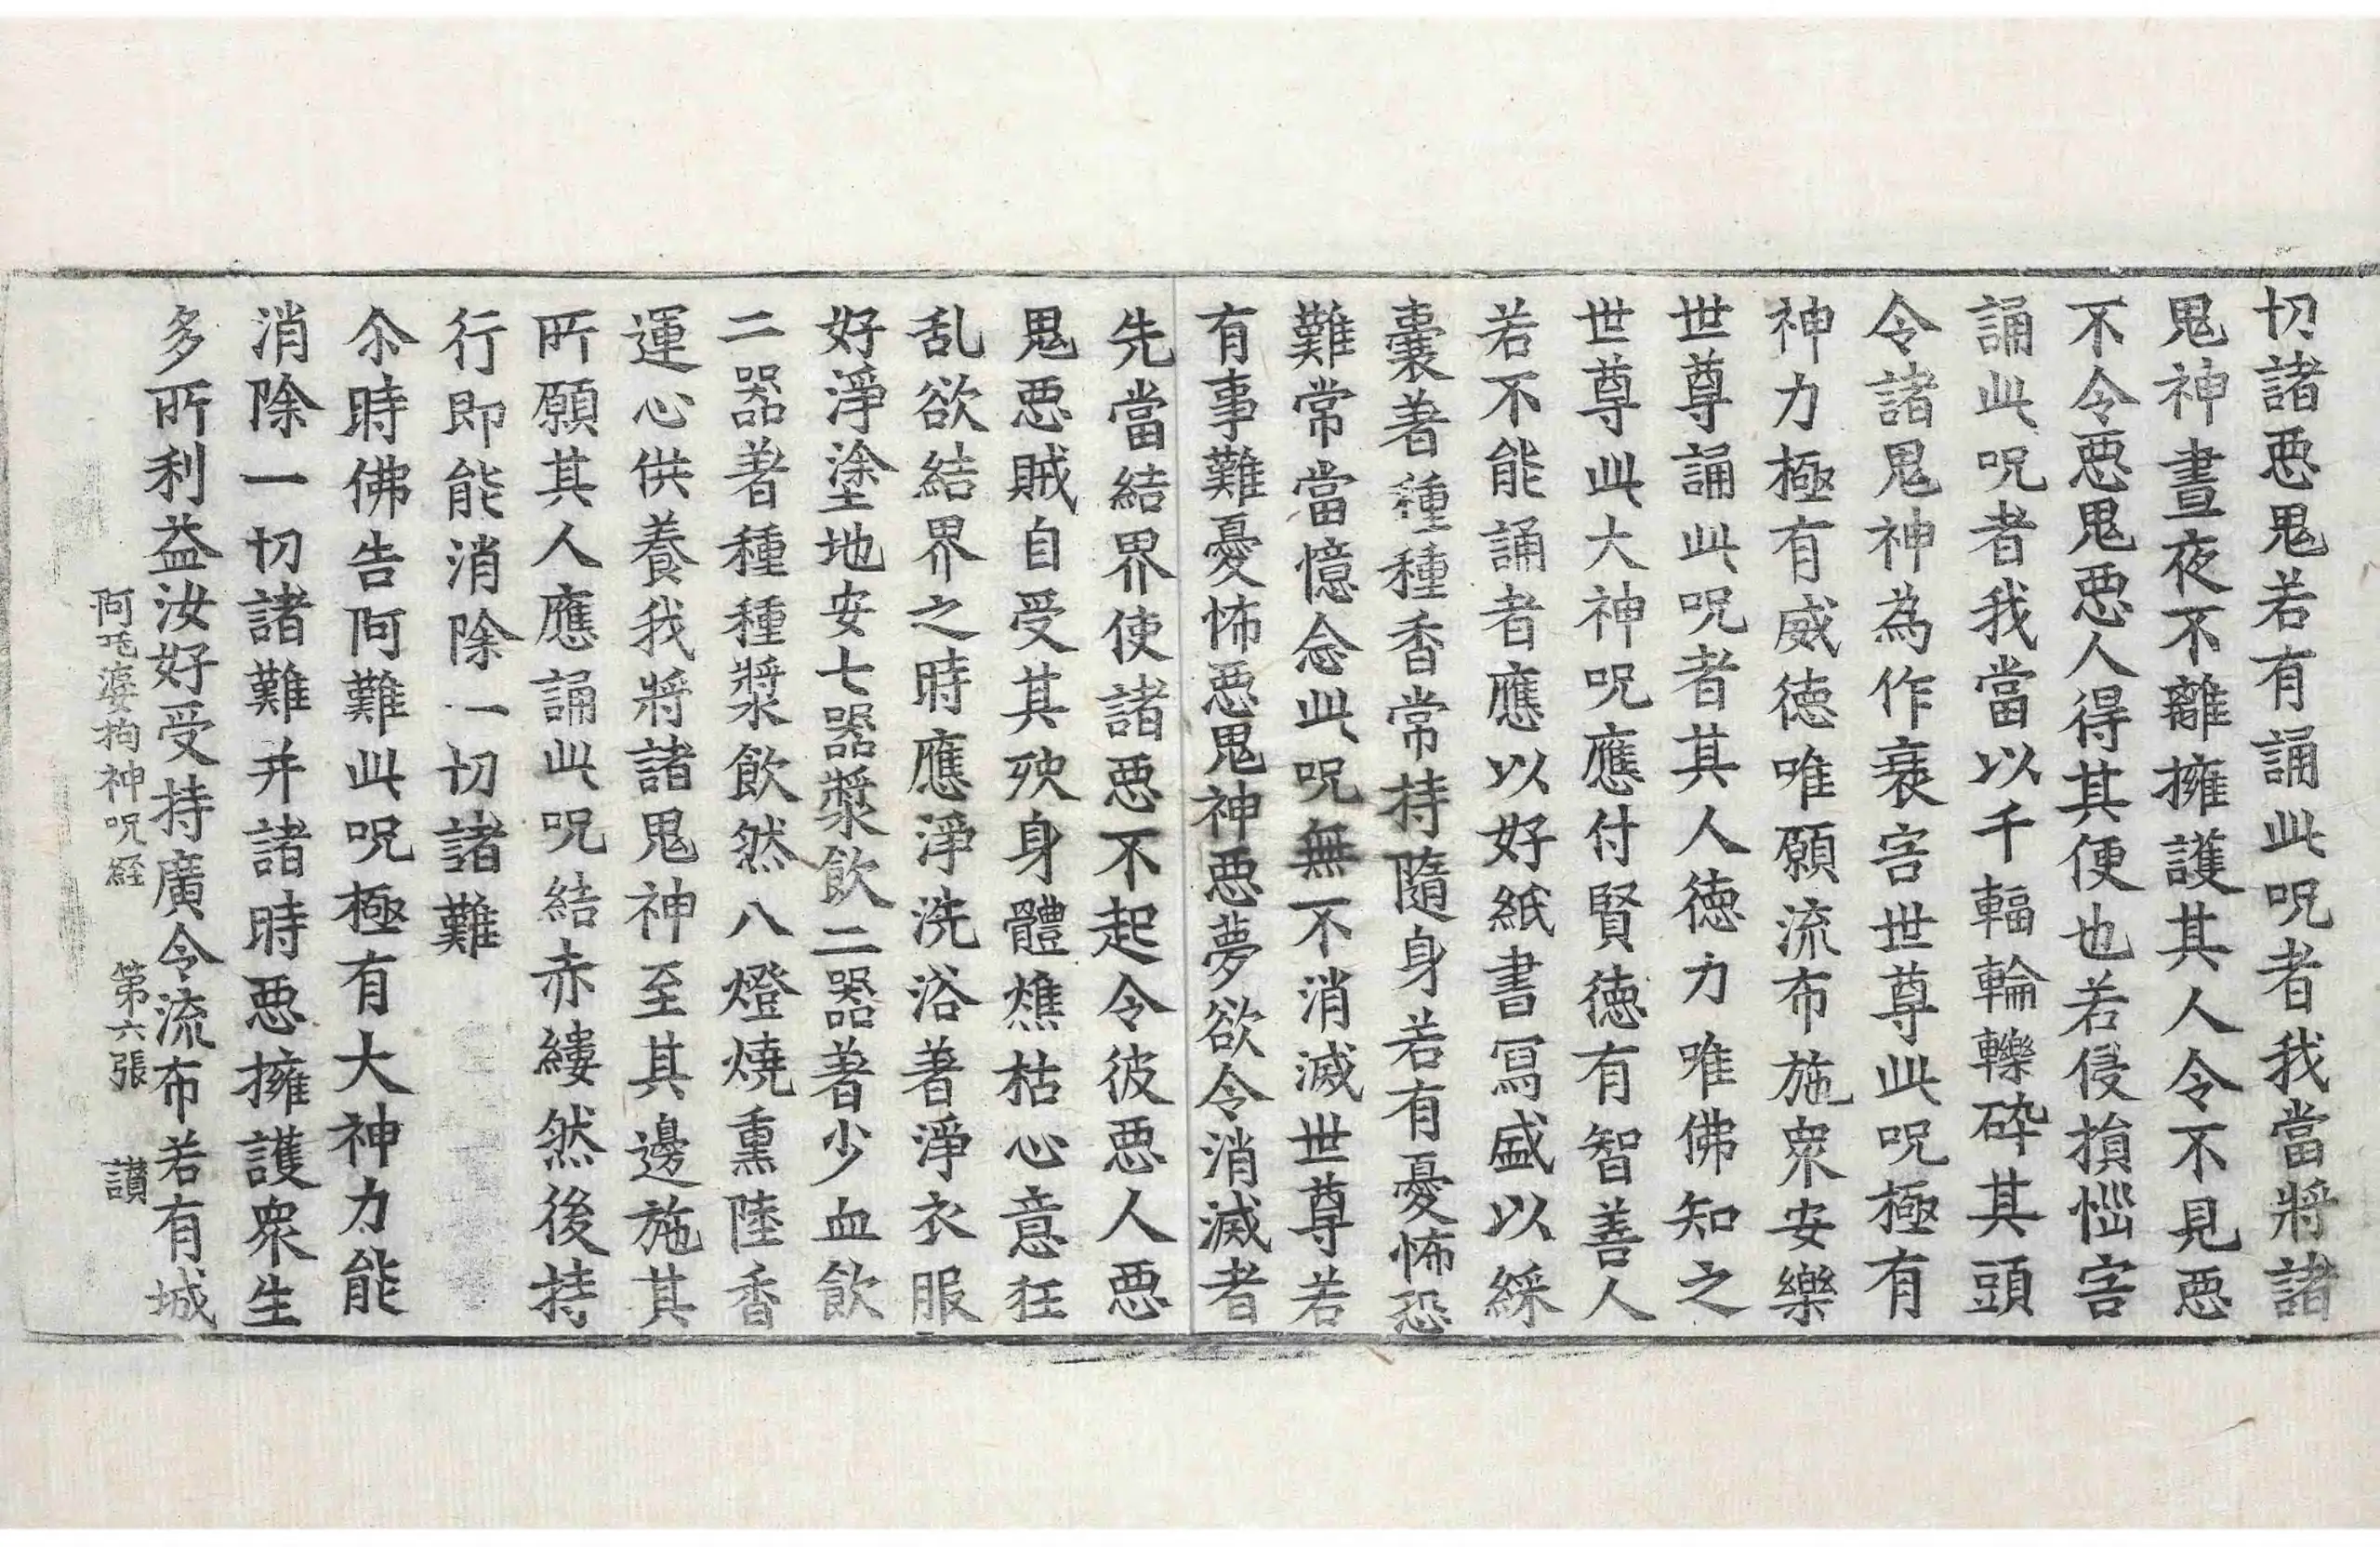 切諸惡鬼若有誦此呪者我當將諸
鬼神晝夜不離擁護其人令不見惡
不令惡鬼惡人得其便也若侵損惱害
誦此呪者我當以千輻輪轢碎其頭
令諸鬼神為作衰害世尊此呪極有
神力極有威德唯願流布施衆安樂
世尊誦此呪者其人德力唯佛知之
世尊此大神呪應付賢德有智善人
若不能誦者應以好紙書寫盛以綵
囊著種種香常持隨身若有憂怖恐
難常當憶念此呪無不消滅世尊若
有事難憂怖惡鬼神惡夢欲令消滅者
先當結界使諸惡不起令彼惡人惡
鬼惡賊自受其殃身體燋枯心意狂
乱欲結界之時應淨洗浴著淨衣服
好淨塗地安七器漿飲二器著少血飲
二器著種種漿飲然八燈燒熏陸香
運心供養我將諸鬼神至其邊施其
所願其人應誦此呪結赤縷然後持
行即能消除一切諸難
尒時佛告阿難此呪極有大神力能
消除一切諸難并諸時惡擁護衆生
多所利益汝好受持廣令流布若有城
阿吒婆拘神呪經 第六張 讃